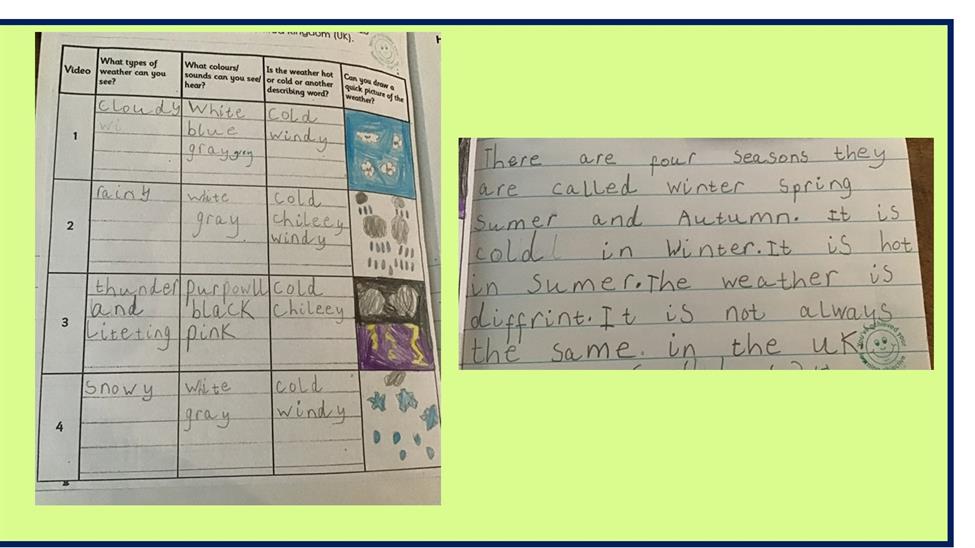 (UK).
Video
What types of weather can you see?
What colours/ sounds can you see/ hear?
Is the weather hot or cold or another describing word?
Can you draw a quick picture of the weather?
1
cloudy
wi
White
blue
gray grey
cold
windy
2
rainy
white
gray
cold
chileey
windy
3
thunder
and
Liteting
purpowll
black
pink
cold
chileey
4
snowy
white
gray
cold
windy
There are four seasons they
are called winter spring
sumer and Autumn. It is
cold in Winter. It is hot
in sumer. The weather is
diffrint. It is not always
the same. in the UK